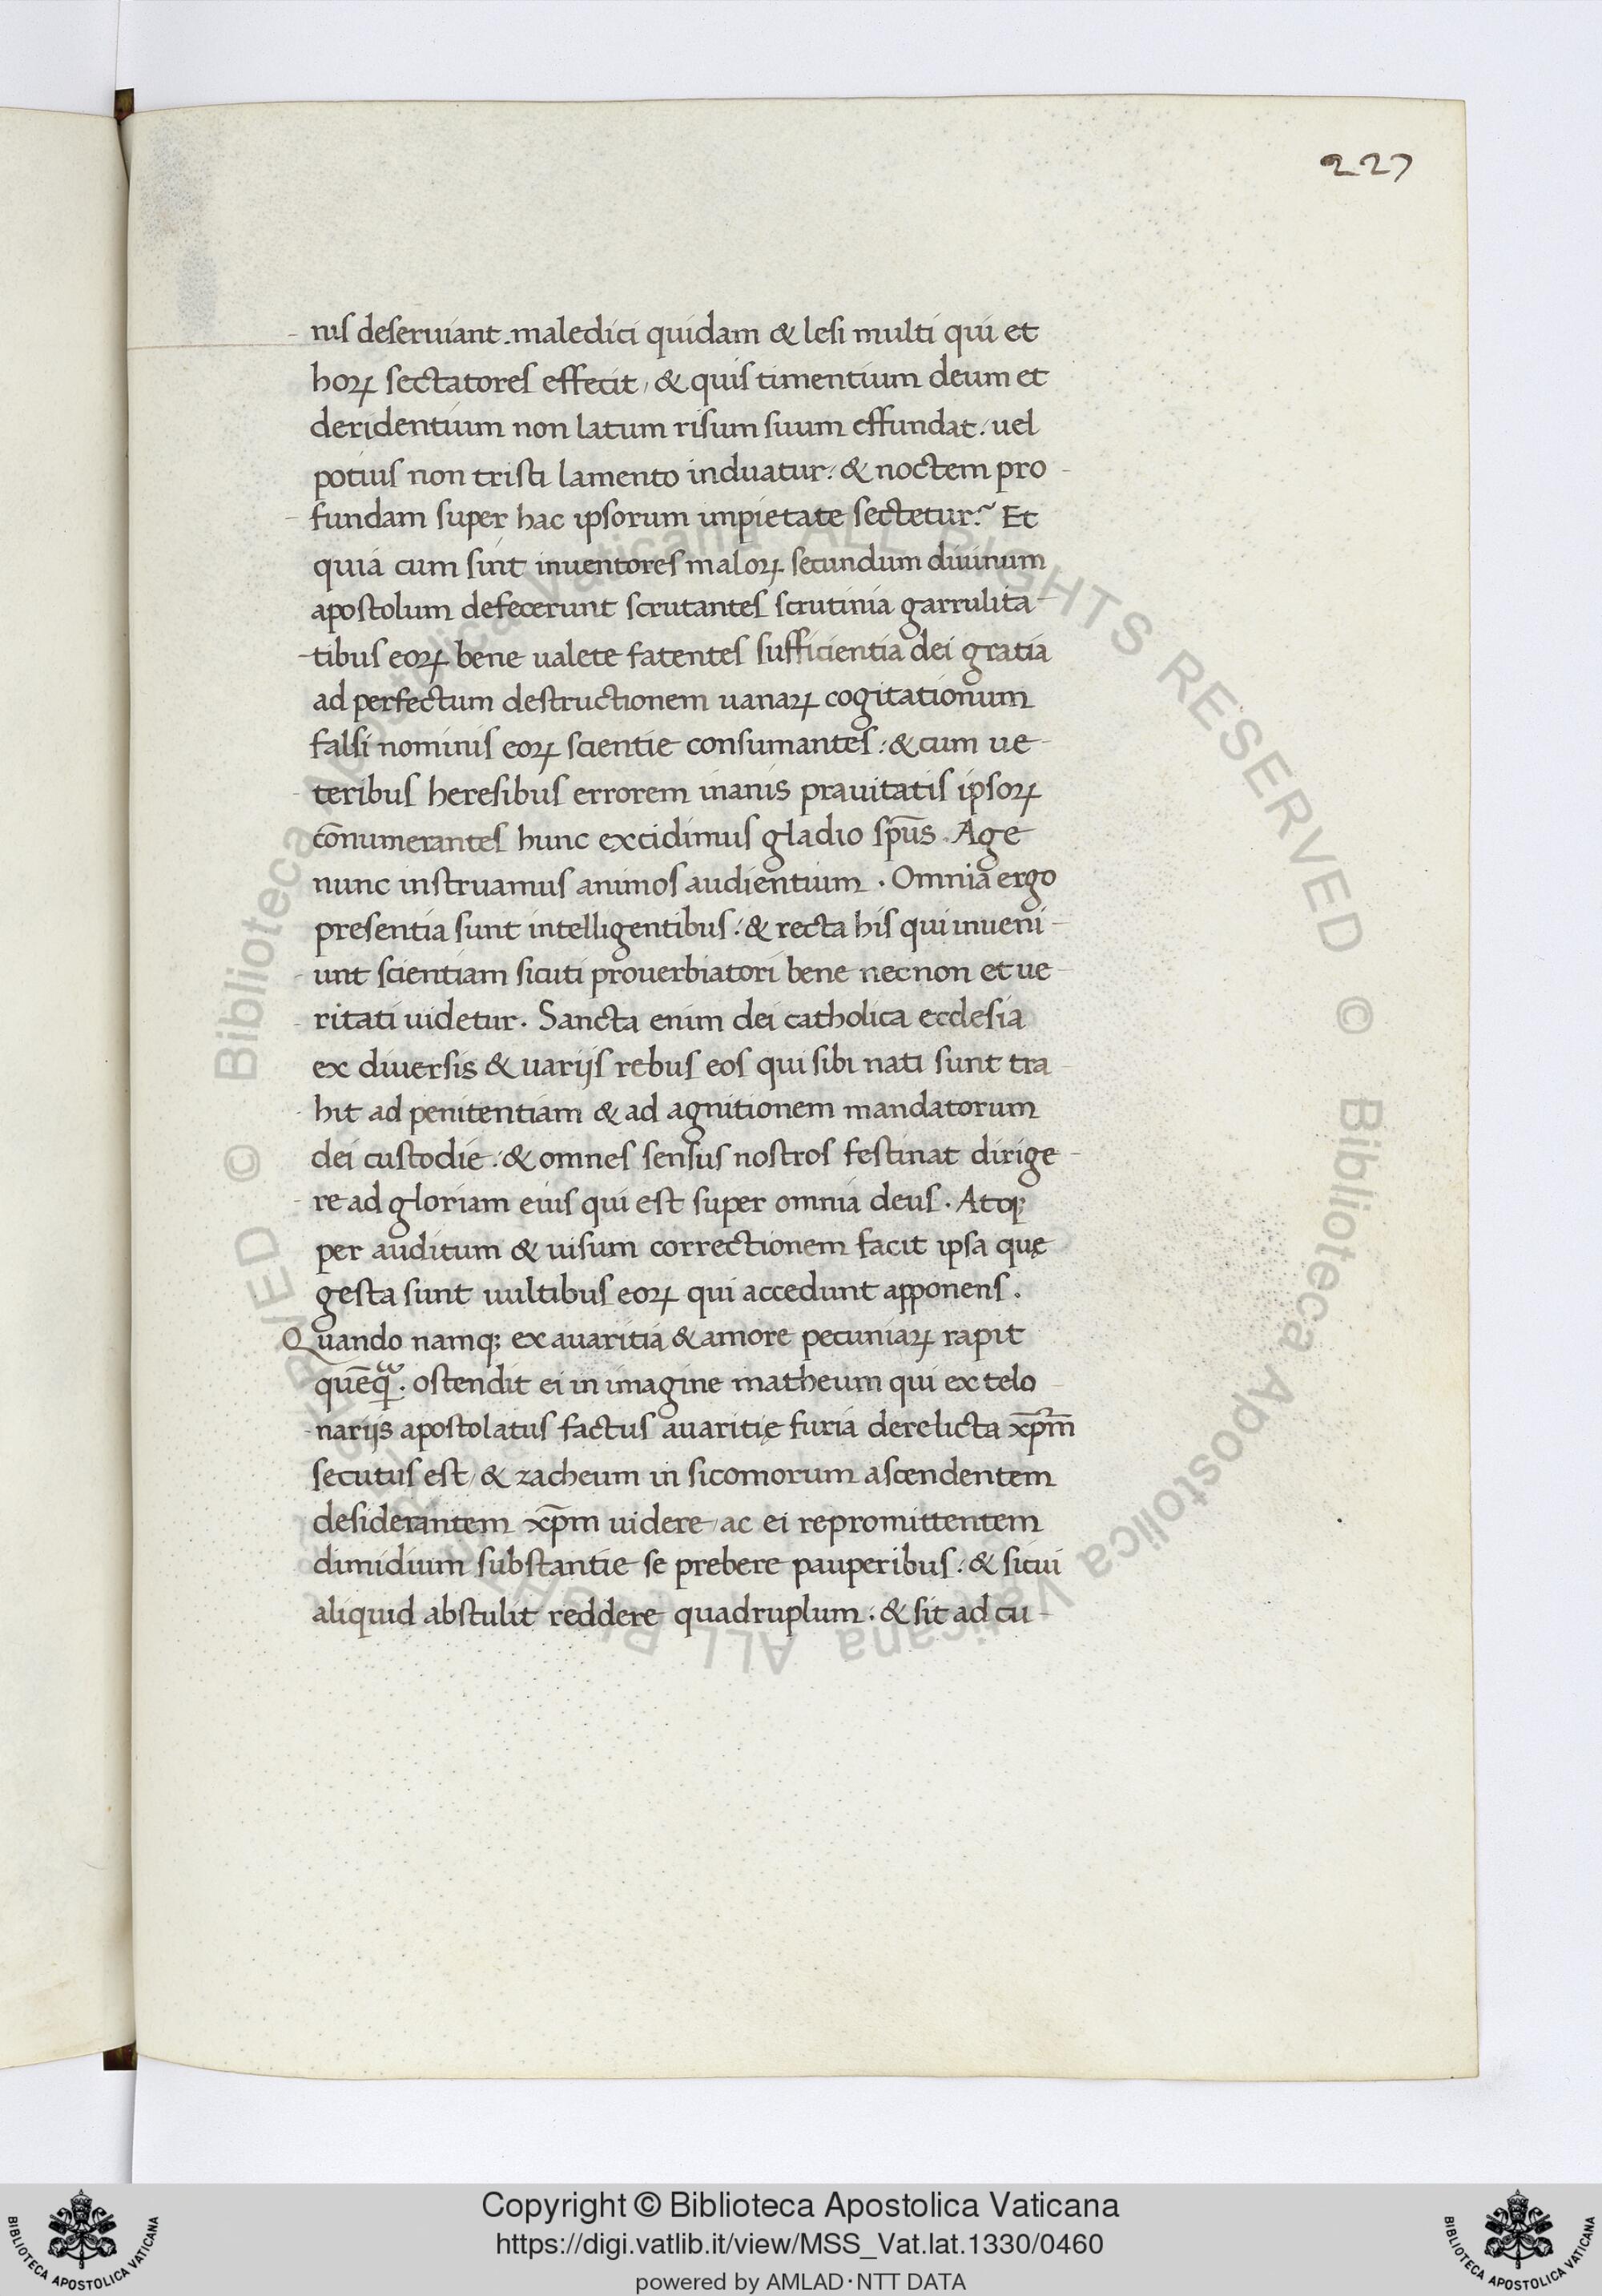 227
nis deseruiant. maledici quidam & lesi multi qui et
horꝝ sectatores effecit, & quis timentium deum et
deridentium non latum risum suum effundat. uel
potius non tristi lamento induatur: & noctem pro-
fundam super hac ipsorum impietate sectetur? Et
quia cum sint inuentores malorꝝ secundum diuinum
apostolum defecerunt scrutantes scrutinia garrulita-
tibus eorꝝ bene ualete fatentes sufficientia dei gratia
ad perfectum destructionem uanarꝝ cogitationum
falsi nominis eorꝝ scientie consumantes: & cum ue-
teribus heresibus errorem inanis prauitatis ipsorꝝ
cōnumerantes hunc excidimus gladio sp̄us. Age
nunc instruamus animos audientium. Omnia ergo
presentia sunt intelligentibus: & recta his qui inueni-
unt scientiam sicuti prouerbiatori bene necnon et ue-
ritati uidetur. Sancta enim dei catholica ecclesia
ex diuersis & uarijs rebus eos qui sibi nati sunt tra-
hit ad penitentiam & ad agnitionem mandatorum
dei custodie: & omnes sensus nostros festinat dirige-
re ad gloriam eius qui est super omnia deus. Atqꝫ
per auditum & uisum correctionem facit ipsa quę
gesta sunt uultibus eorꝝ qui accedunt apponens.
Quando namqꝫ ex auaritia & amore pecuniarꝝ rapit
quēqͣ. ostendit ei in imagine matheum qui ex telo-
narijs apostolatus factus auaritię furia derelicta xp̄m
secutus est, & zacheum in sicomorum ascendentem
desiderantem xp̄m uidere, ac ei repromittentem
dimidium substantie se prebere pauperibus: & sicui
aliquid abstulit reddere quadruplum. & sit ad cu-
© Biblioteca Apostolica Vaticana ALL RIGHTS RESERVED © Biblioteca Apostolica Vaticana ALL RIGHTS RESERVED
Copyright © Biblioteca Apostolica Vaticana
https://digi.vatlib.it/view/MSS_Vat.lat.1330/0460
powered by AMLAD·NTT DATA
BIBLIOTECA APOSTOLICA VATICANA
BIBLIOTECA APOSTOLICA VATICANA